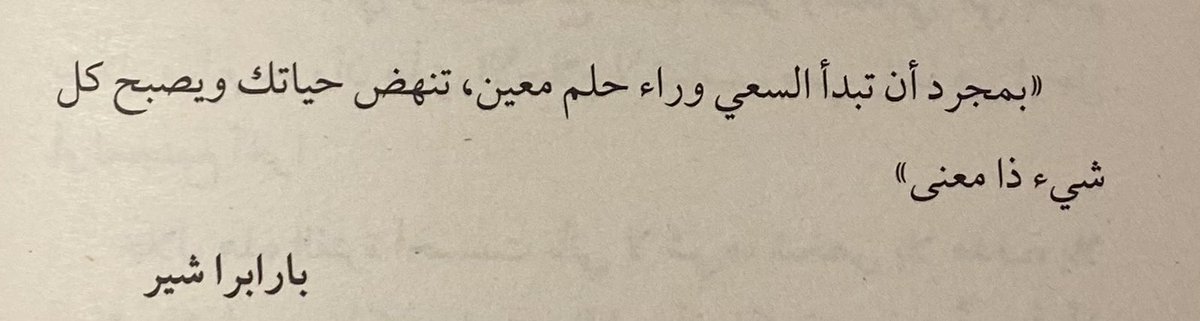 «بمجرد أن تبدأ السعي وراء حلم معين، تنهض حياتك ويصبح كل
شيء ذا معنى»
بارابرا شير